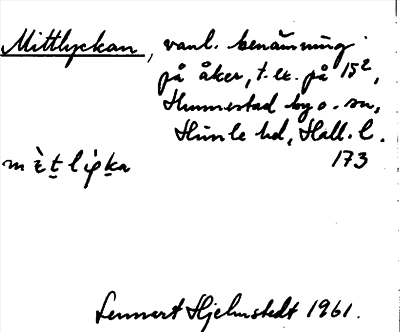 Mittlyckan, vanl. benämning
på åker, t. ex. på 15²,
Hunnestad by o. sn,
Himle hd, Hall. l.
173
Lennart Hjelmstedt 1961.